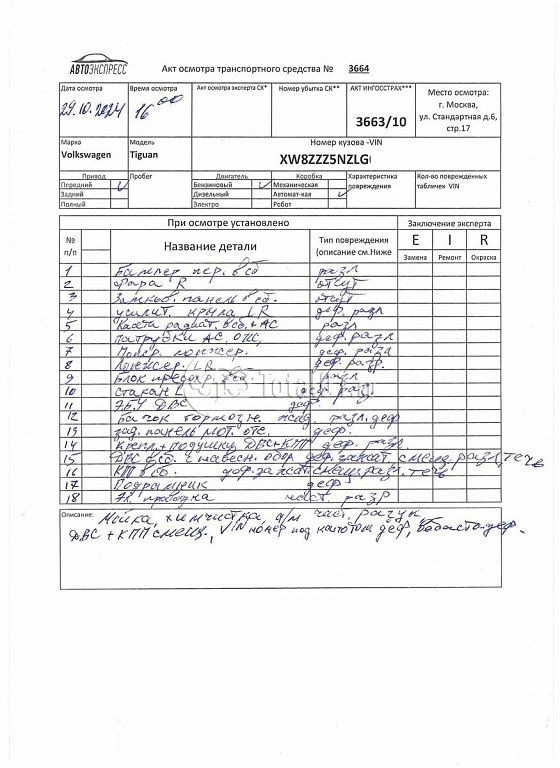 АВТОЭКСПРЕСС
Акт осмотра транспортного средства № 3664
Дата осмотра Время осмотра Акт осмотра эксперта СК* Номер убытка СК** АКТ ИНГОССТРАХ***
29.10.2024 16 00 3663/10
Место осмотра:
г. Москва,
ул. Стандартная д.6,
стр.17
Марка Модель Номер кузова -VIN
Volkswagen Tiguan XW8ZZZ5NZLG
Привод Пробег Двигатель Коробка Характеристика повреждения Кол-во поврежденных табличек VIN
Передний Бензиновый Механическая
Задний Дизельный Автомат-кая
Полный Электро Робот
При осмотре установлено Заключение эксперта
№ п/п Название детали Тип повреждения (описание см.Ниже E I R
Замена Ремонт Окраска
1 Бампер пер. в сб разл
2 Фара R отсут
3 Замков. панель в сб. отсут
4 усилит. крыла LR деф. разл
5 Касета радиат. в сб. + АС разл
6 Патрубки АС, ож, деф. разл
7 деф. разл
8 Лонжер. LR деф. разр.
9 Блок предохр. в сб. разл
10 стакан L деф. раз
11 ЭБУ ДВС деф
12 Бачок тормозн. жид разл. деф
13 зад. панель мот. отс. деф.
14 крепл. + подушки ДВС+КПП деф. разл.
15 ДВС в сб. с навесн. обор деф. зажат смещ. разл, течь
16 КПП в сб. деф. зажат. смещ. разл. течь
17 Подрамник деф
18 Эл. проводка част. разр
Описание: Мойка, химчистка, д/м част. разук.
ДВС + КПП смещ., VIN номер под капотом деф,